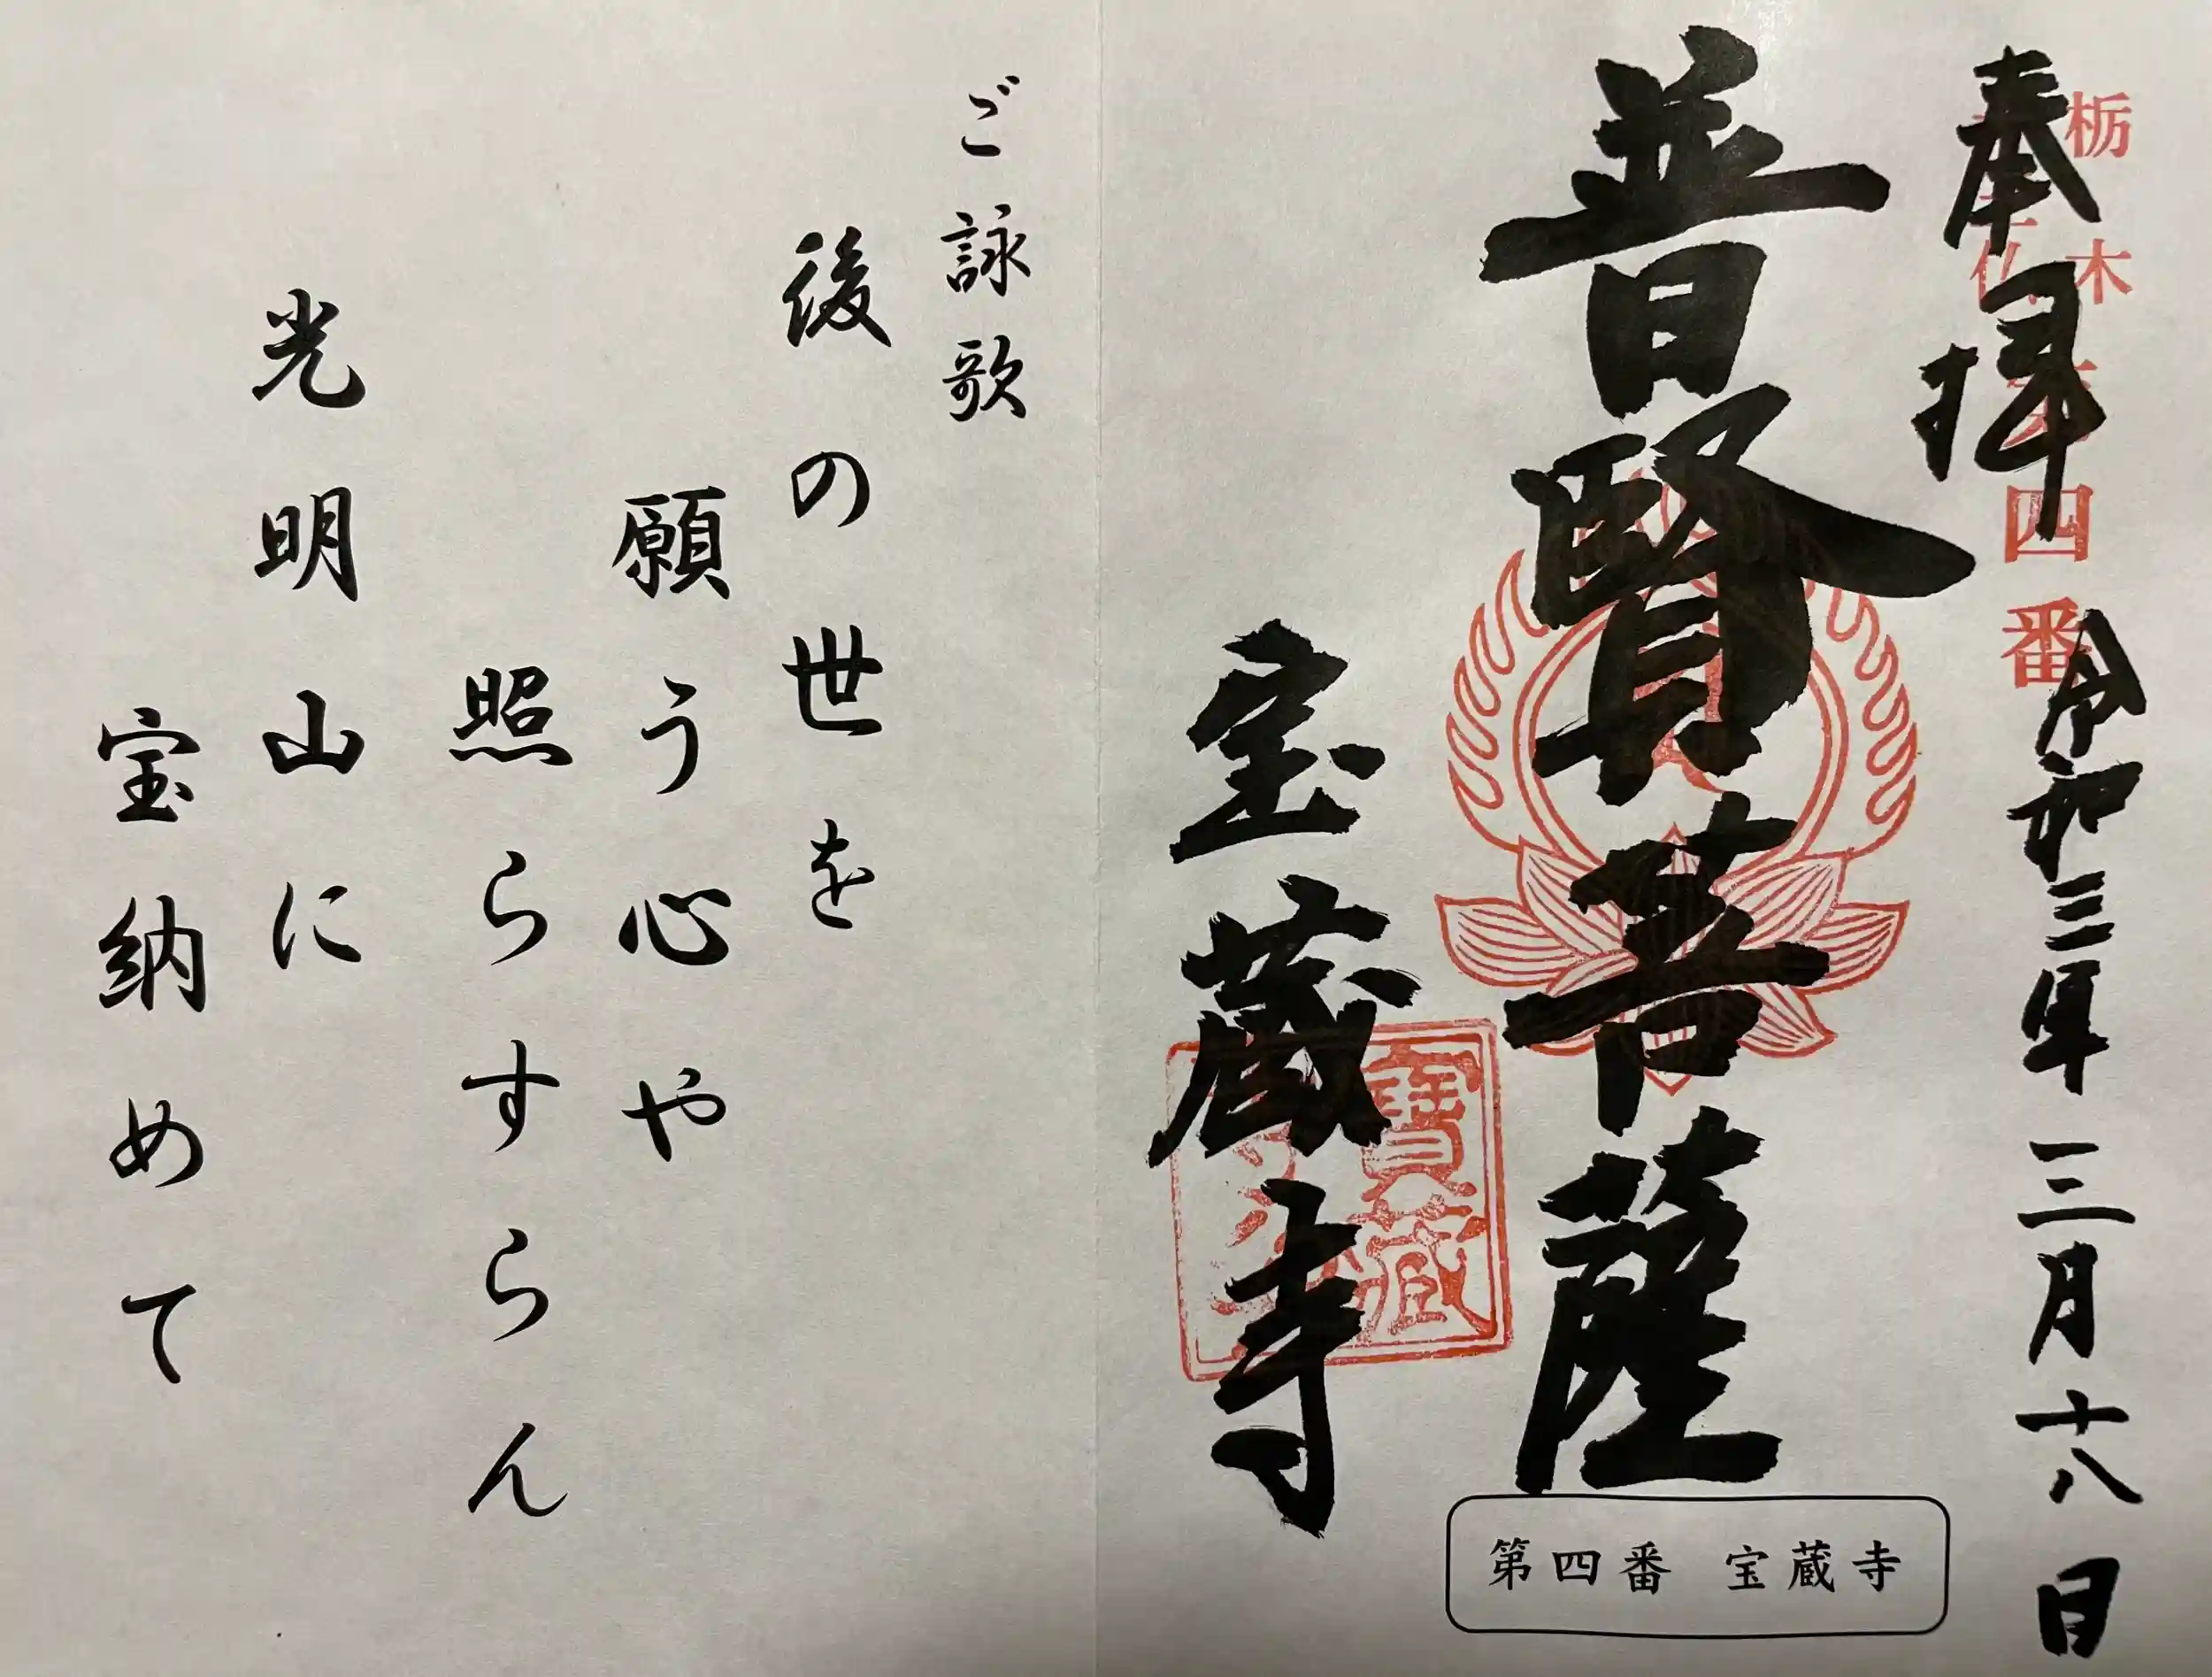 栃木
仏
四番
奉拝
令和三年三月十八日
普賢菩薩
宝蔵寺
寶藏
第四番 宝蔵寺
ご詠歌
後の世を
願う心や
照らすらん
光明山に
宝納めて